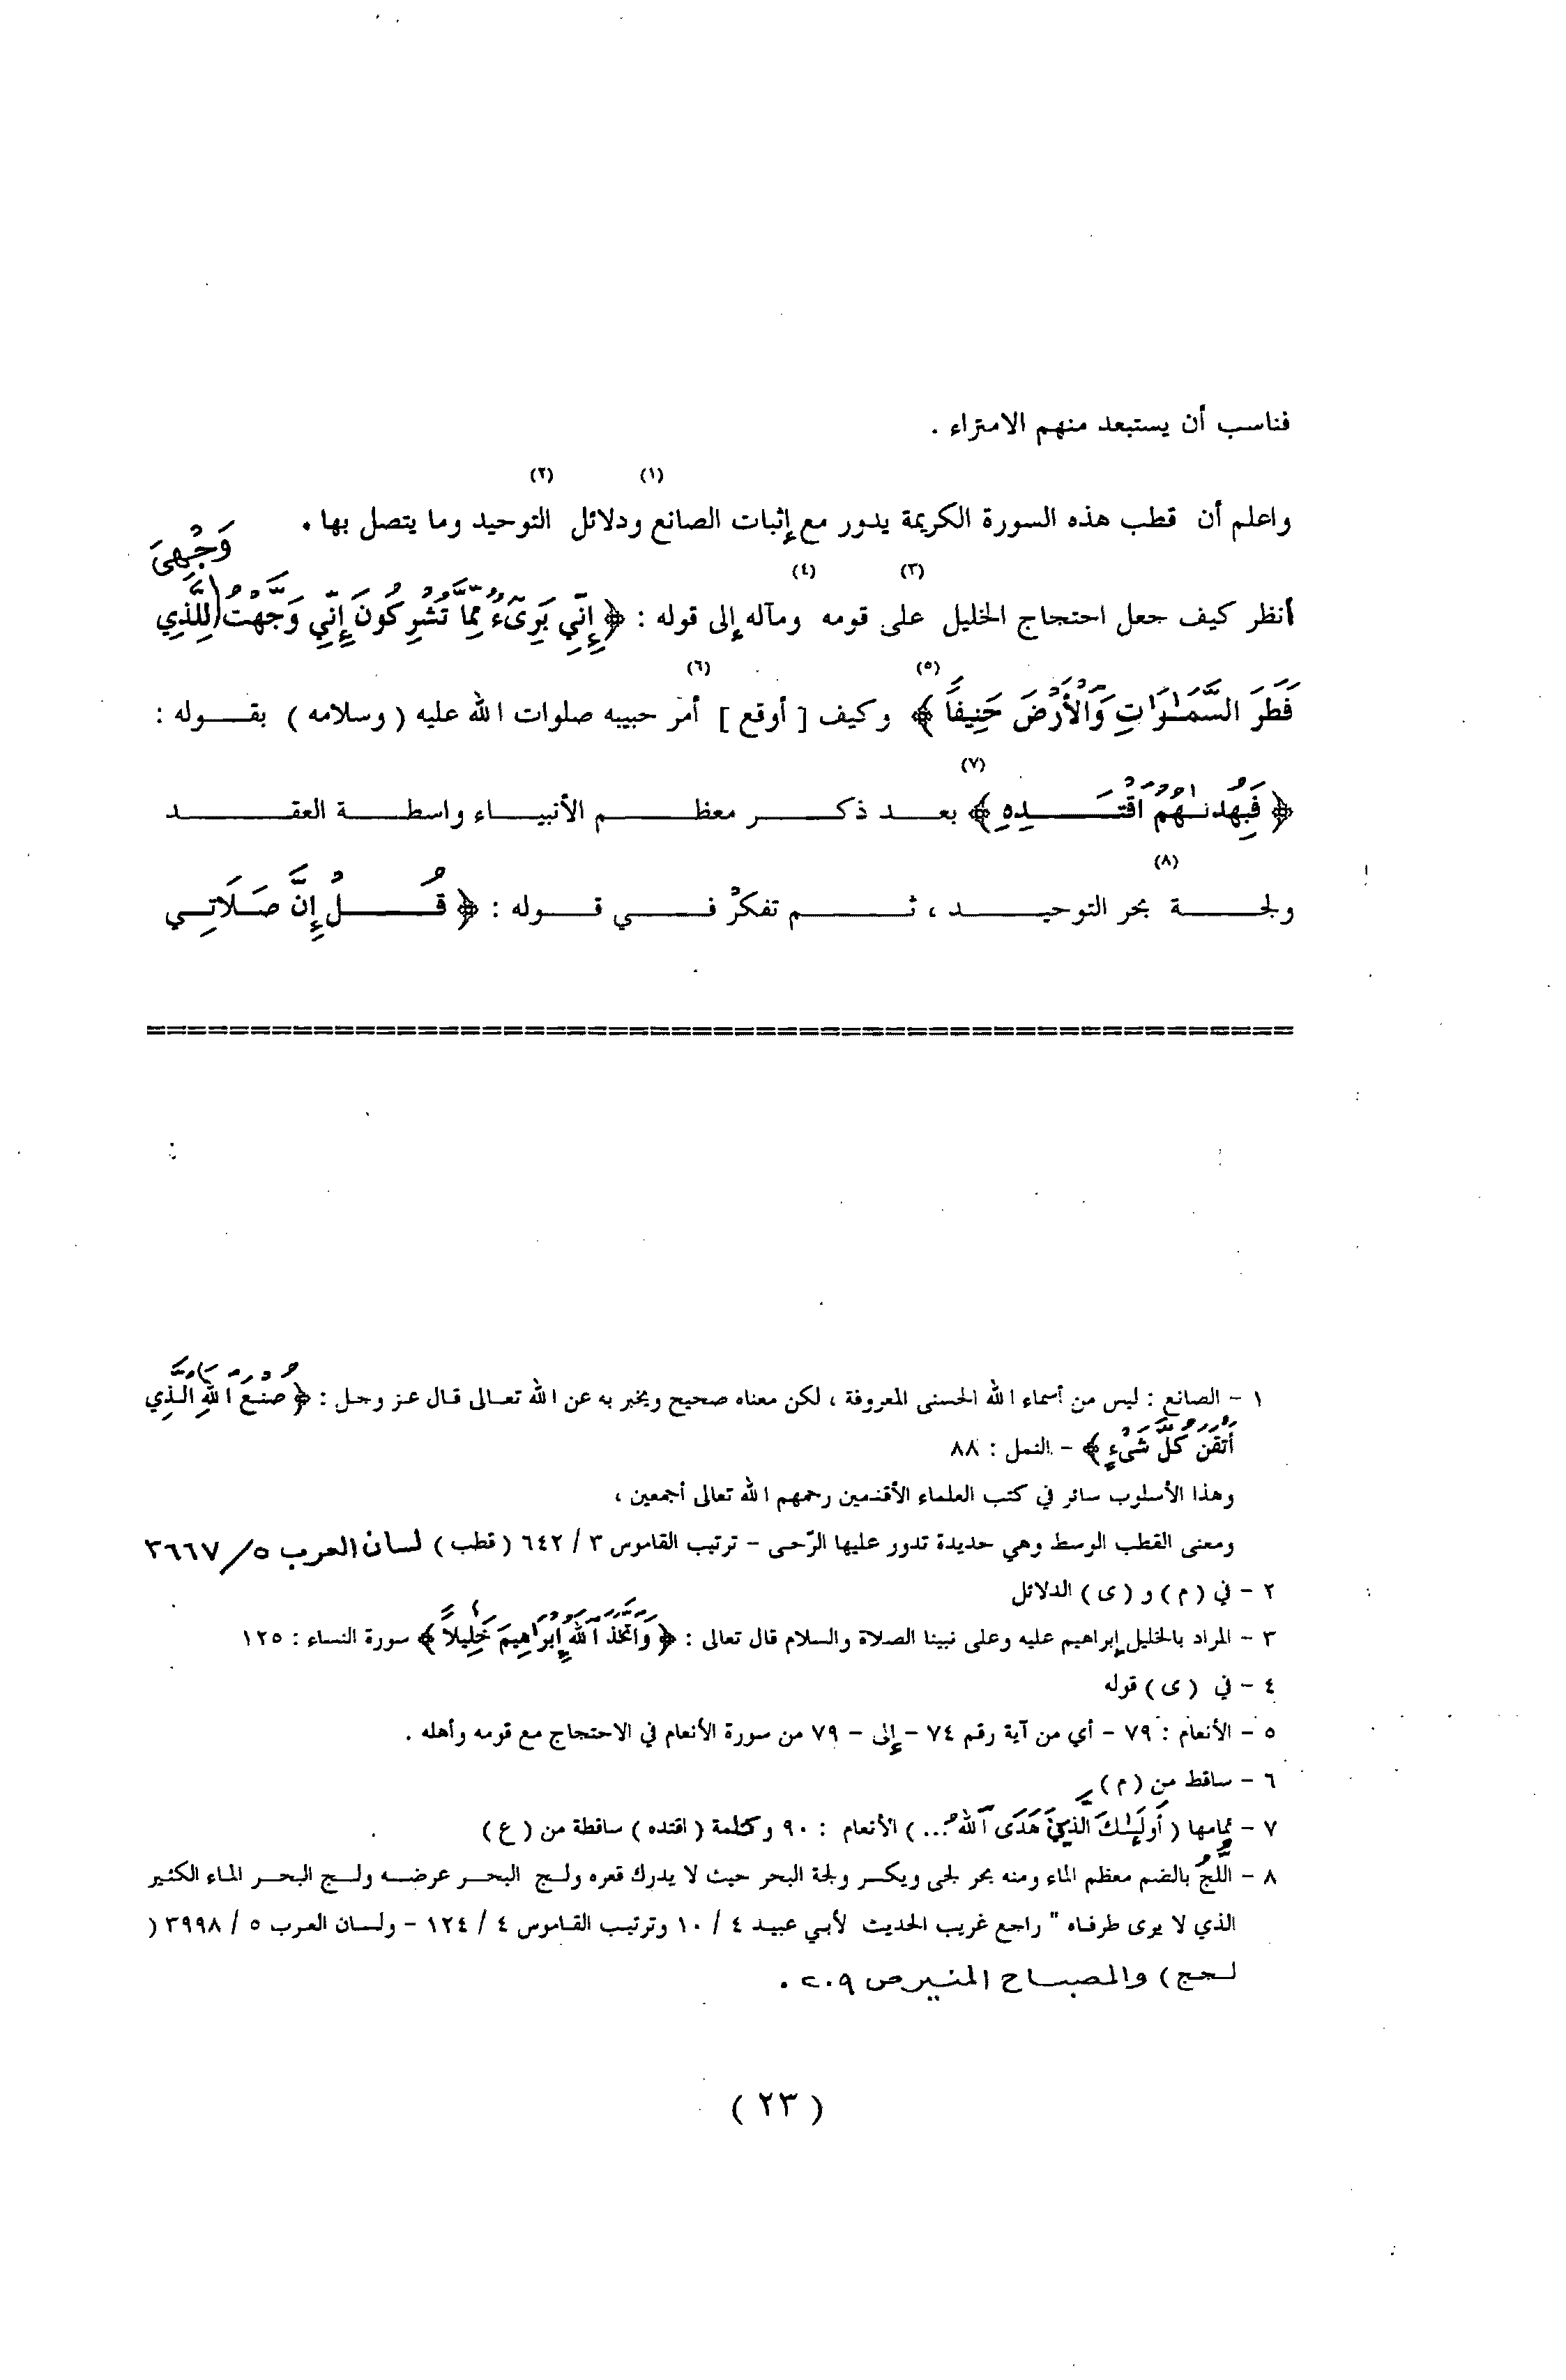 فناسب أن يستبعد منهم الامتراء .
(١) (٢)
واعلم أن قطب هذه السورة الكريمة يدور مع إثبات الصانع ودلائل التوحيد وما يتصل بها .
(٣) (٤)
أنظر كيف جعل احتجاج الخليل على قومه ومآله إلى قوله : ﴿ إِنِّي بَرِىءٌ مِّمَّا تُشْرِكُونَ إِنِّي وَجَّهْتُ وَجْهِىَ لِلَّذِي
(٥) (٦)
فَطَرَ السَّمَٰوَٰتِ وَالْأَرْضَ حَنِيفًا ﴾ وكيف [ أوقع ] أمر حبيبه صلوات الله عليه ( وسلامه ) بقوله :
(٧)
﴿ فَبِهُدَىٰهُمُ اقْتَدِهِ ﴾ بعد ذكر معظم الأنبياء واسطة العقد
(٨)
ولجة بحر التوحيد ، ثم تفكرْ في قوله : ﴿ قُلْ إِنَّ صَلَاتِي
١ - الصانع : ليس من أسماء الله الحسنى المعروفة ، لكن معناه صحيح ويخبر به عن الله تعالى قال عز وجل : ﴿ صُنْعَ اللهِ الَّذِي
أَتْقَنَ كُلَّ شَىْءٍ ﴾ - النمل : ٨٨
وهذا الأسلوب سائر في كتب العلماء الأقدمين رحمهم الله تعالى أجمعين ،
ومعنى القطب الوسط وهي حديدة تدور عليها الرّحى - ترتيب القاموس ٣ / ٦٤٢ ( قطب ) لسان العرب ٥ / ٣٦٦٧
٢ - في ( م ) و ( ى ) الدلائل
٣ - المراد بالخليل إبراهيم عليه وعلى نبينا الصلاة والسلام قال تعالى : ﴿ وَاتَّخَذَ اللهُ إِبْرَاهِيمَ خَلِيلاً ﴾ سورة النساء : ١٢٥
٤ - في ( ى ) قوله
٥ - الأنعام : ٧٩ - أي من آية رقم ٧٤ - إلى - ٧٩ من سورة الأنعام في الاحتجاج مع قومه وأهله .
٦ - ساقط من ( م )
٧ - تمامها ( أُولَٰئِكَ الَّذِينَ هَدَى اللهُ ... ) الأنعام : ٩٠ وكلمة ( اقتده ) ساقطة من ( ع )
٨ - اللُّجُّ بالضم معظم الماء ومنه بحر لجى ويكسر ولجة البحر حيث لا يدرك قعره ولج البحر عرضه ولج البحر الماء الكثير
الذي لا يرى طرفاه " راجع غريب الحديث لأبي عبيد ٤ / ١٠ وترتيب القاموس ٤ / ١٢٤ - ولسان العرب ٥ / ٣٩٩٨ (
لجج ) والمصباح المنير ص ٢٠٩ .
( ٢٣ )